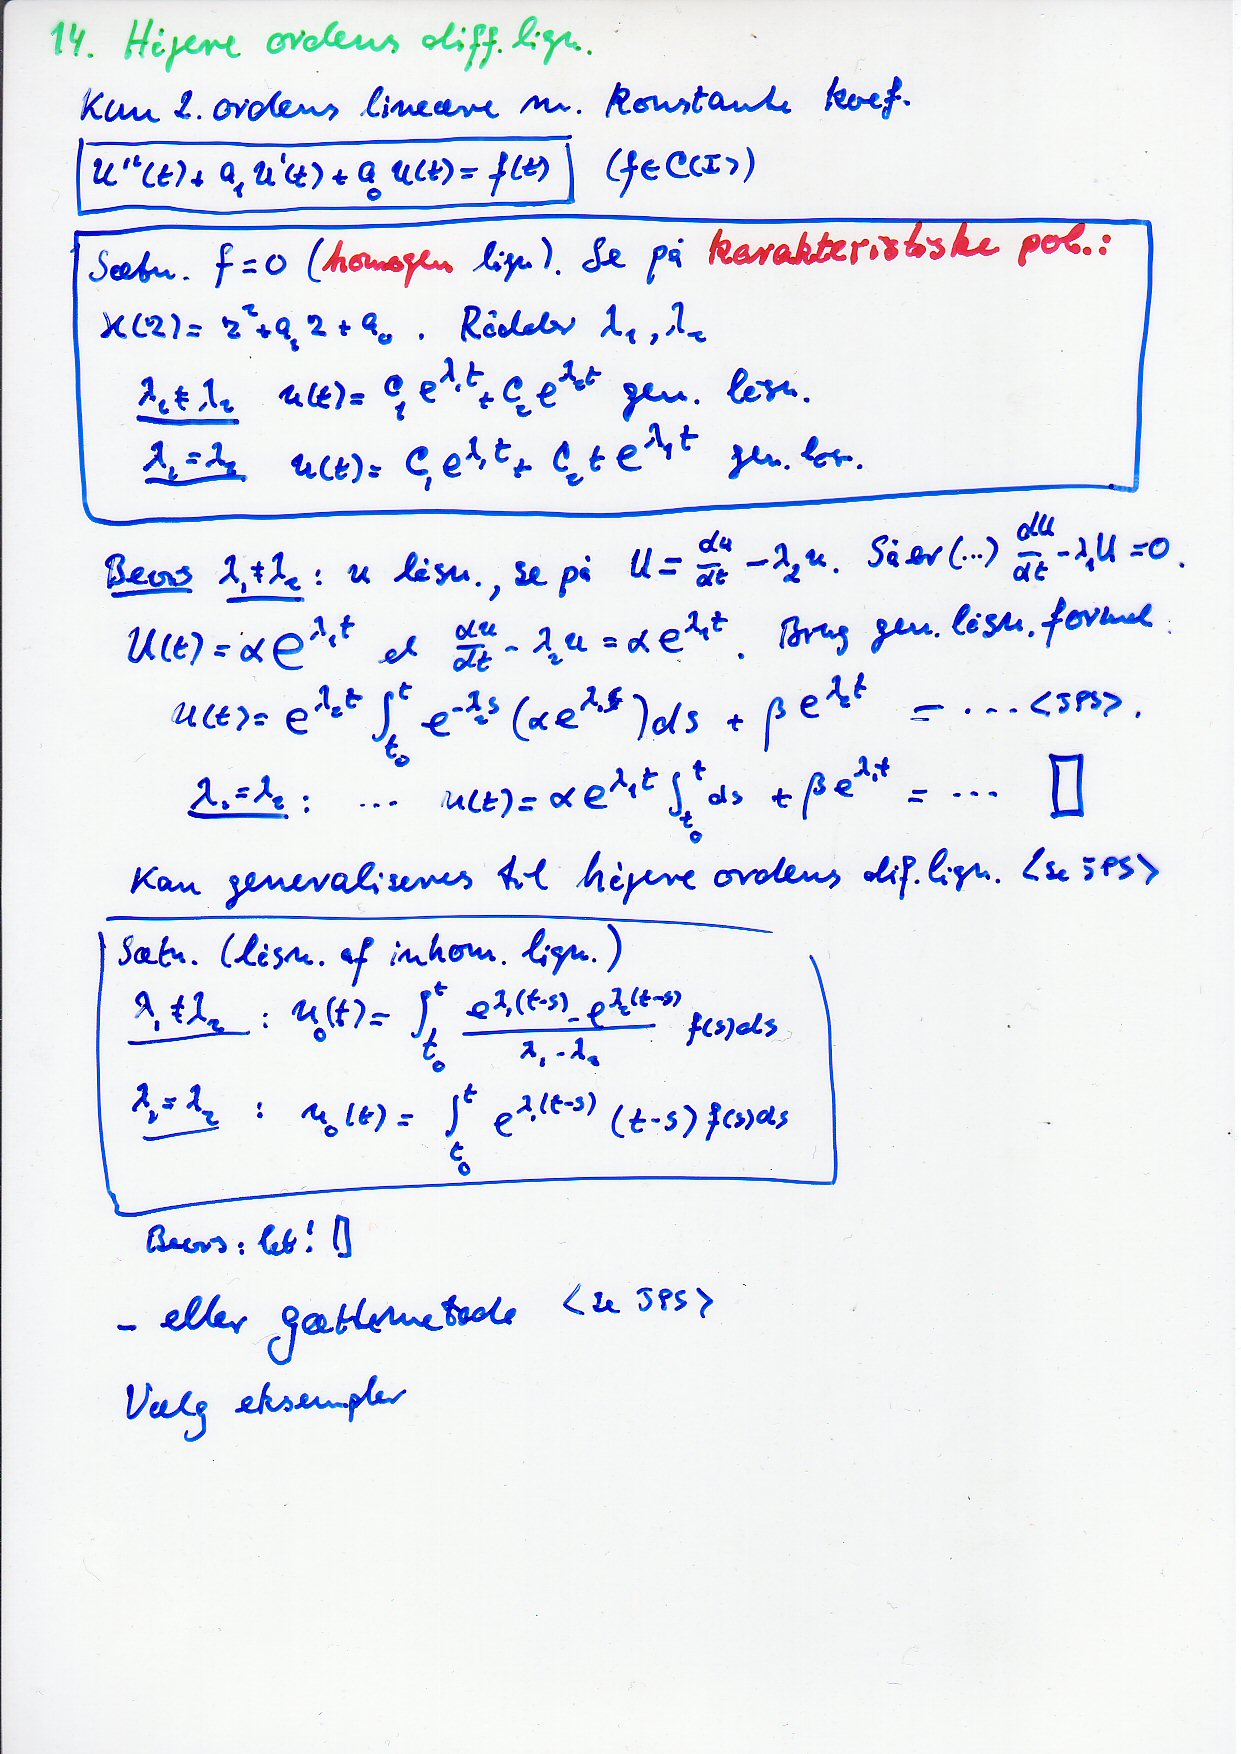 14. Højere ordens diff.lign.
Kun 2. ordens lineære m. konstante koef.
u''(t) + a₁ u'(t) + a₀ u(t) = f(t) (f ∈ C(I))
Sætn. f = 0 (homogen lign.). Se på karakteristiske pol.:
χ(z) = z² + a₁ z + a₀ . Rødder λ₁, λ₂
λ₁ ≠ λ₂ u(t) = C₁ e^{λ₁t} + C₂ e^{λ₂t} gen. løsn.
λ₁ = λ₂ u(t) = C₁ e^{λ₁t} + C₂ t e^{λ₁t} gen. løs.
Bevis λ₁ ≠ λ₂ : u løsn., se på U = du/dt − λ₂u. Så er (...) dU/dt − λ₁U = 0.
U(t) = α e^{λ₁t} el du/dt − λ₂u = α e^{λ₁t}. Brug gen. løsn. formel:
u(t) = e^{λ₂t} ∫_{t₀}^{t} e^{−λ₂s} (α e^{λ₁s}) ds + β e^{λ₂t} = ... <JPS>.
λ₁ = λ₂ : ... u(t) = α e^{λ₁t} ∫_{t₀}^{t} ds + β e^{λ₁t} = ... □
Kan generaliseres til højere ordens dif.lign. <se JPS>
Sætn. (løsn. af inhom. lign.)
λ₁ ≠ λ₂ : u₀(t) = ∫_{t₀}^{t} (e^{λ₁(t−s)} − e^{λ₂(t−s)})/(λ₁ − λ₂) f(s)ds
λ₁ = λ₂ : u₀(t) = ∫_{t₀}^{t} e^{λ₁(t−s)} (t−s) f(s)ds
Bevis: let! □
- eller gættemetode <se JPS>
Vælg eksempler